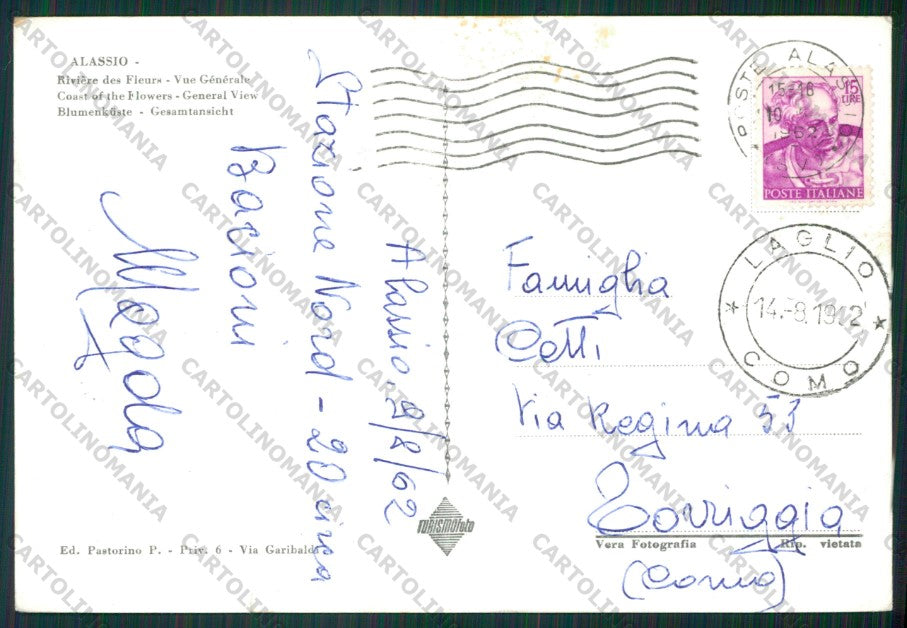 ALASSIO -
Rivière des Fleurs - Vue Générale
Coast of the Flowers - General View
Blumenküste - Gesamtansicht
Stazione Nord - 20 circa
Bacioni
Magda
Alassio, 9/8/62
POSTE ALASSIO
15-16
10
1962
15
LIRE
POSTE ITALIANE
LAGLIO
14.-8.1962
COMO
Famiglia
Cetti
Via Regina 53
Torriggia
(Como)
TURISMOfoto
Ed. Pastorino P. - Priv. 6 - Via Garibaldi
Vera Fotografia
Rip. vietata
CARTOLINOMANIA